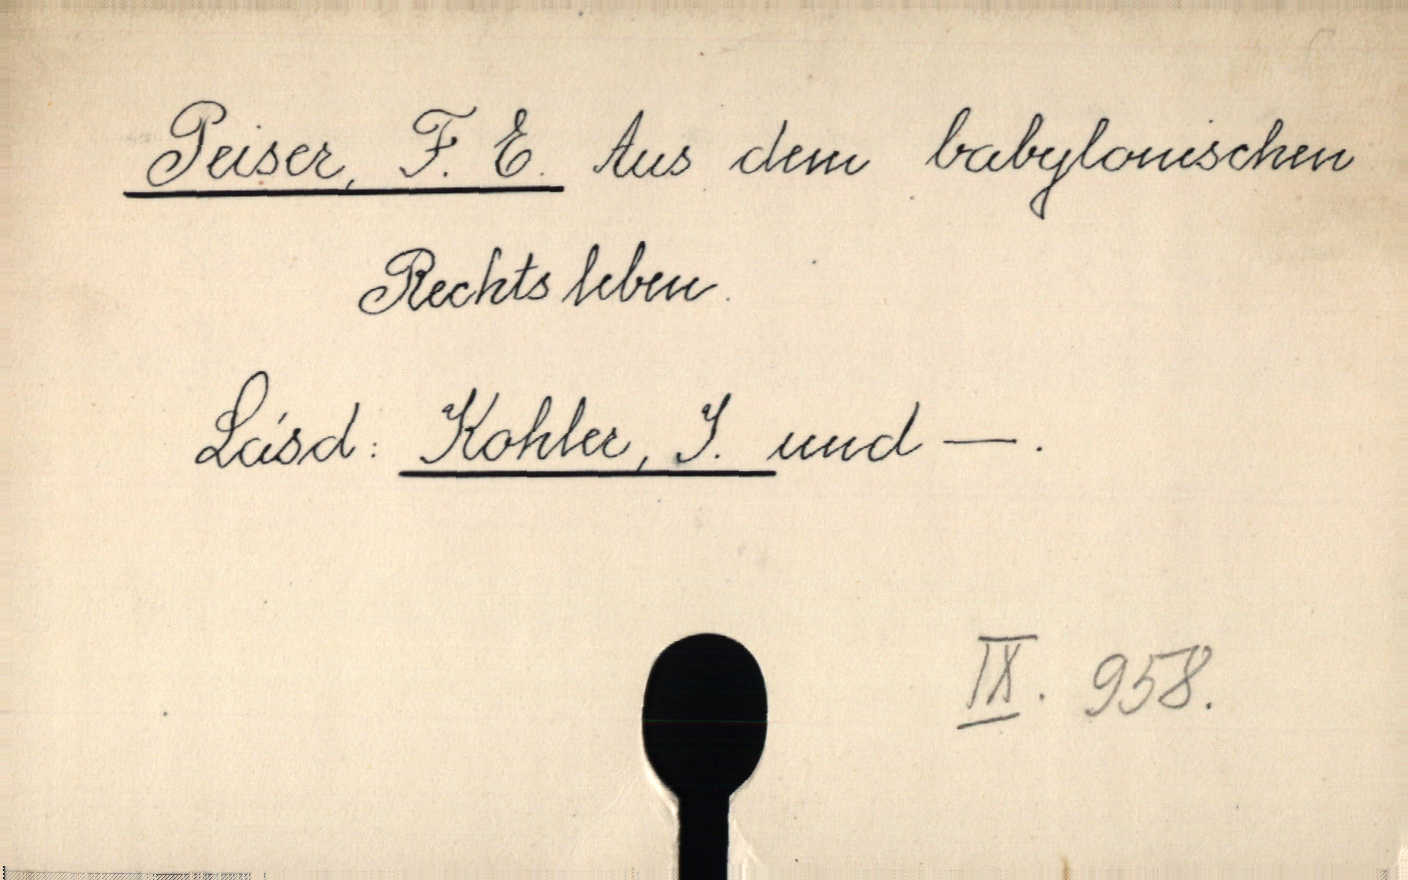 Peiser, F. E. Aus dem babylonischen
Rechtsleben.
Lásd: Kohler, J. und —.
IX. 958.